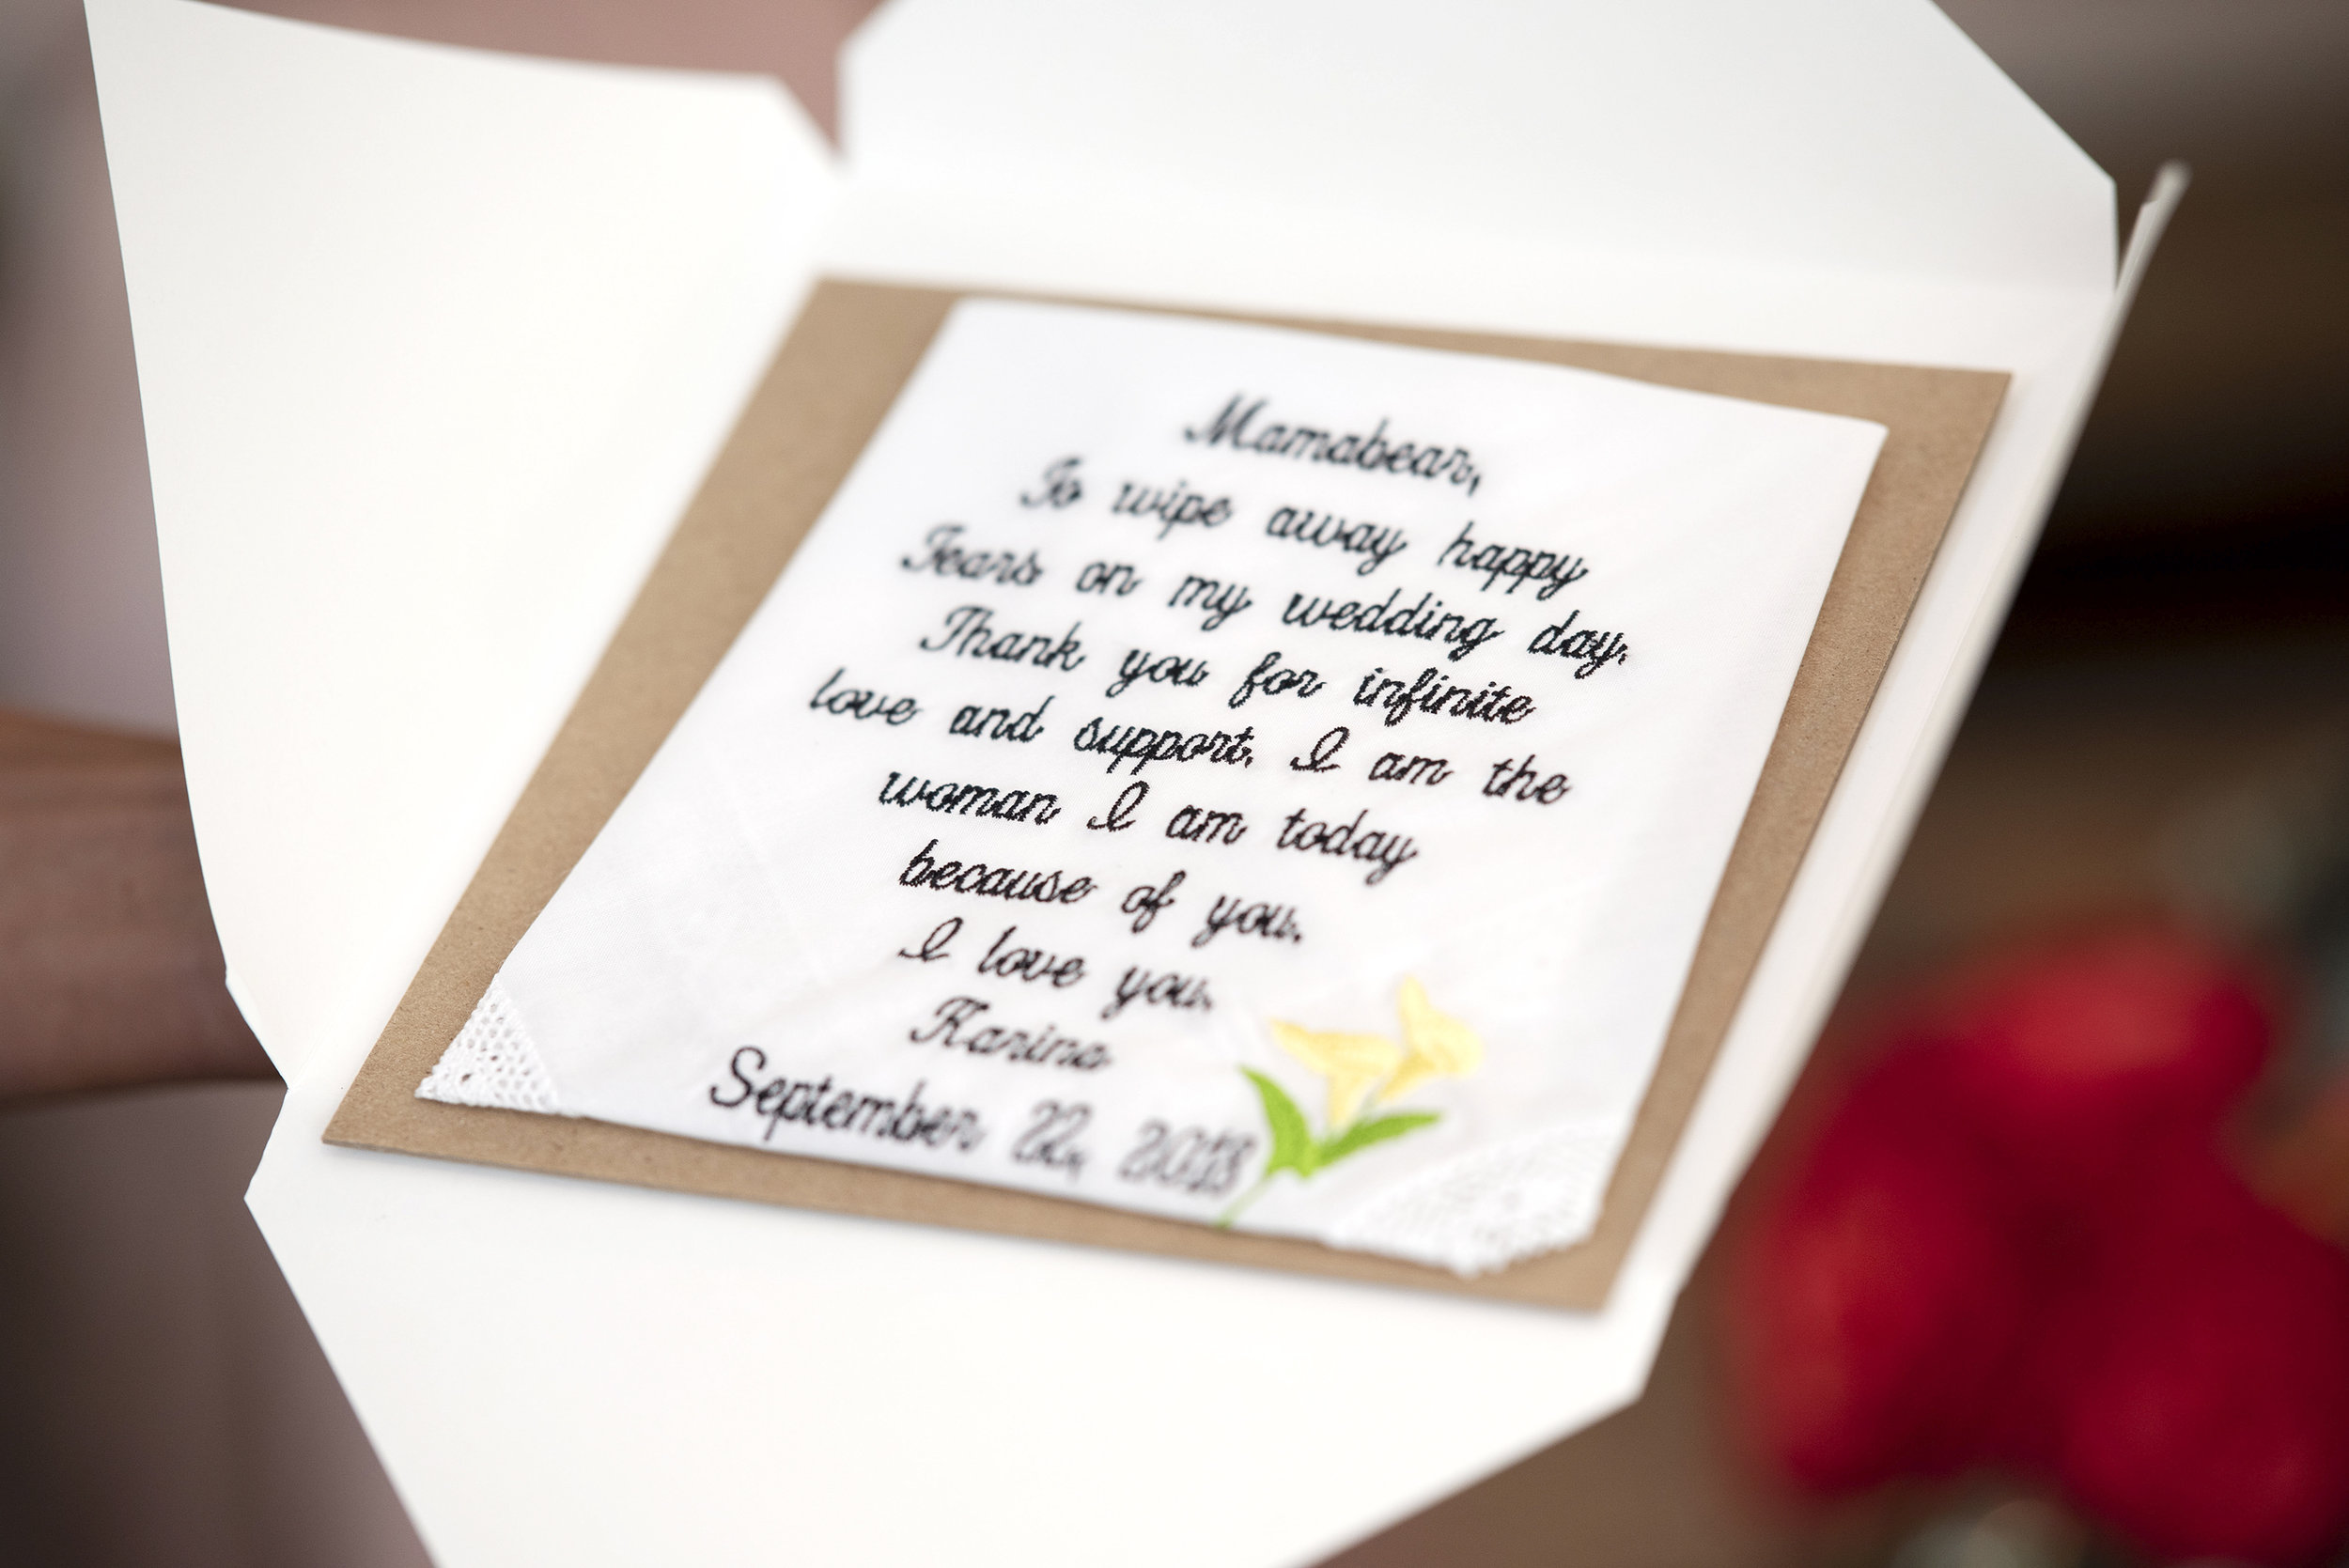 Mamabear,
To wipe away happy
Tears on my wedding day.
Thank you for infinite
love and support. I am the
woman I am today
because of you.
I love you.
Karina
September 22, 2018